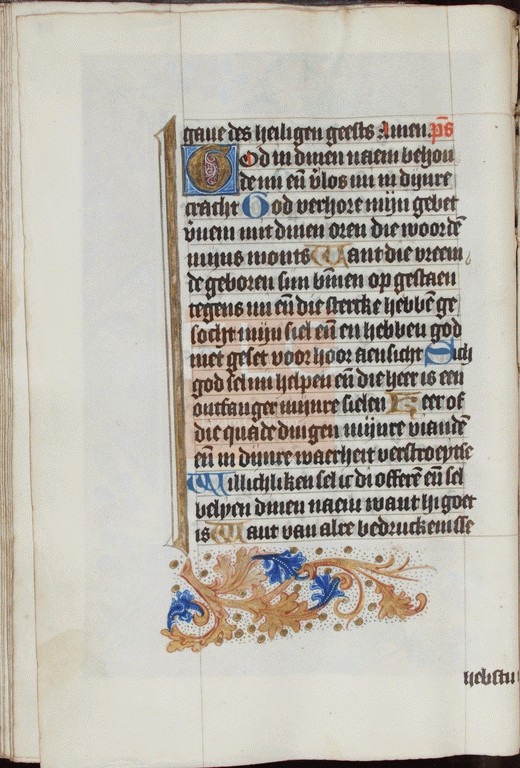 gaue des heiligen geests Amen. p̄s
God in dinen naem behou
de mi eñ v̄los mi in dijnre
cracht God verhore mijn gebet
v̄nem mit dinen oren die woordē
mijns monts Want die vreem
de geboren sijn bīnen op gestaen
tegens mi eñ die stercke hebbē ge
socht mijn siel eñ en hebben god
niet geset voor hoor aensicht Sich
god sel mi helpen eñ die heer is een
ontfanger mijnre sielen Keer of
die quade dingen mijnre viandē
eñ in dijnre waerheit verstroeytse
Willichliken sel ic di offerē eñ sel
belyen dinen naem want hi goet
is Want van alre bedruckenisse
hebstu